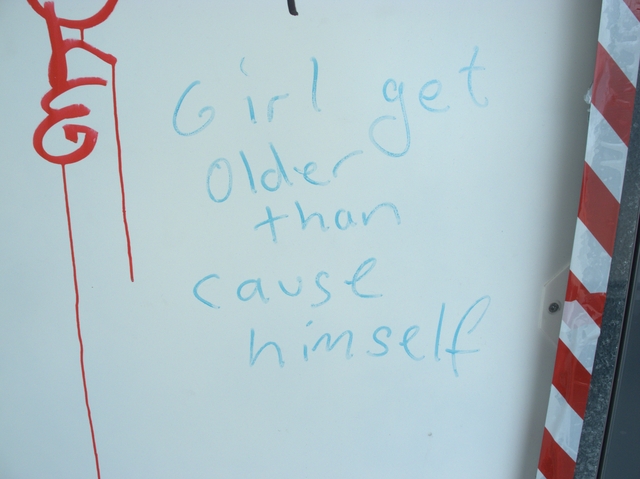 Girl get
Older
than
cause
himself